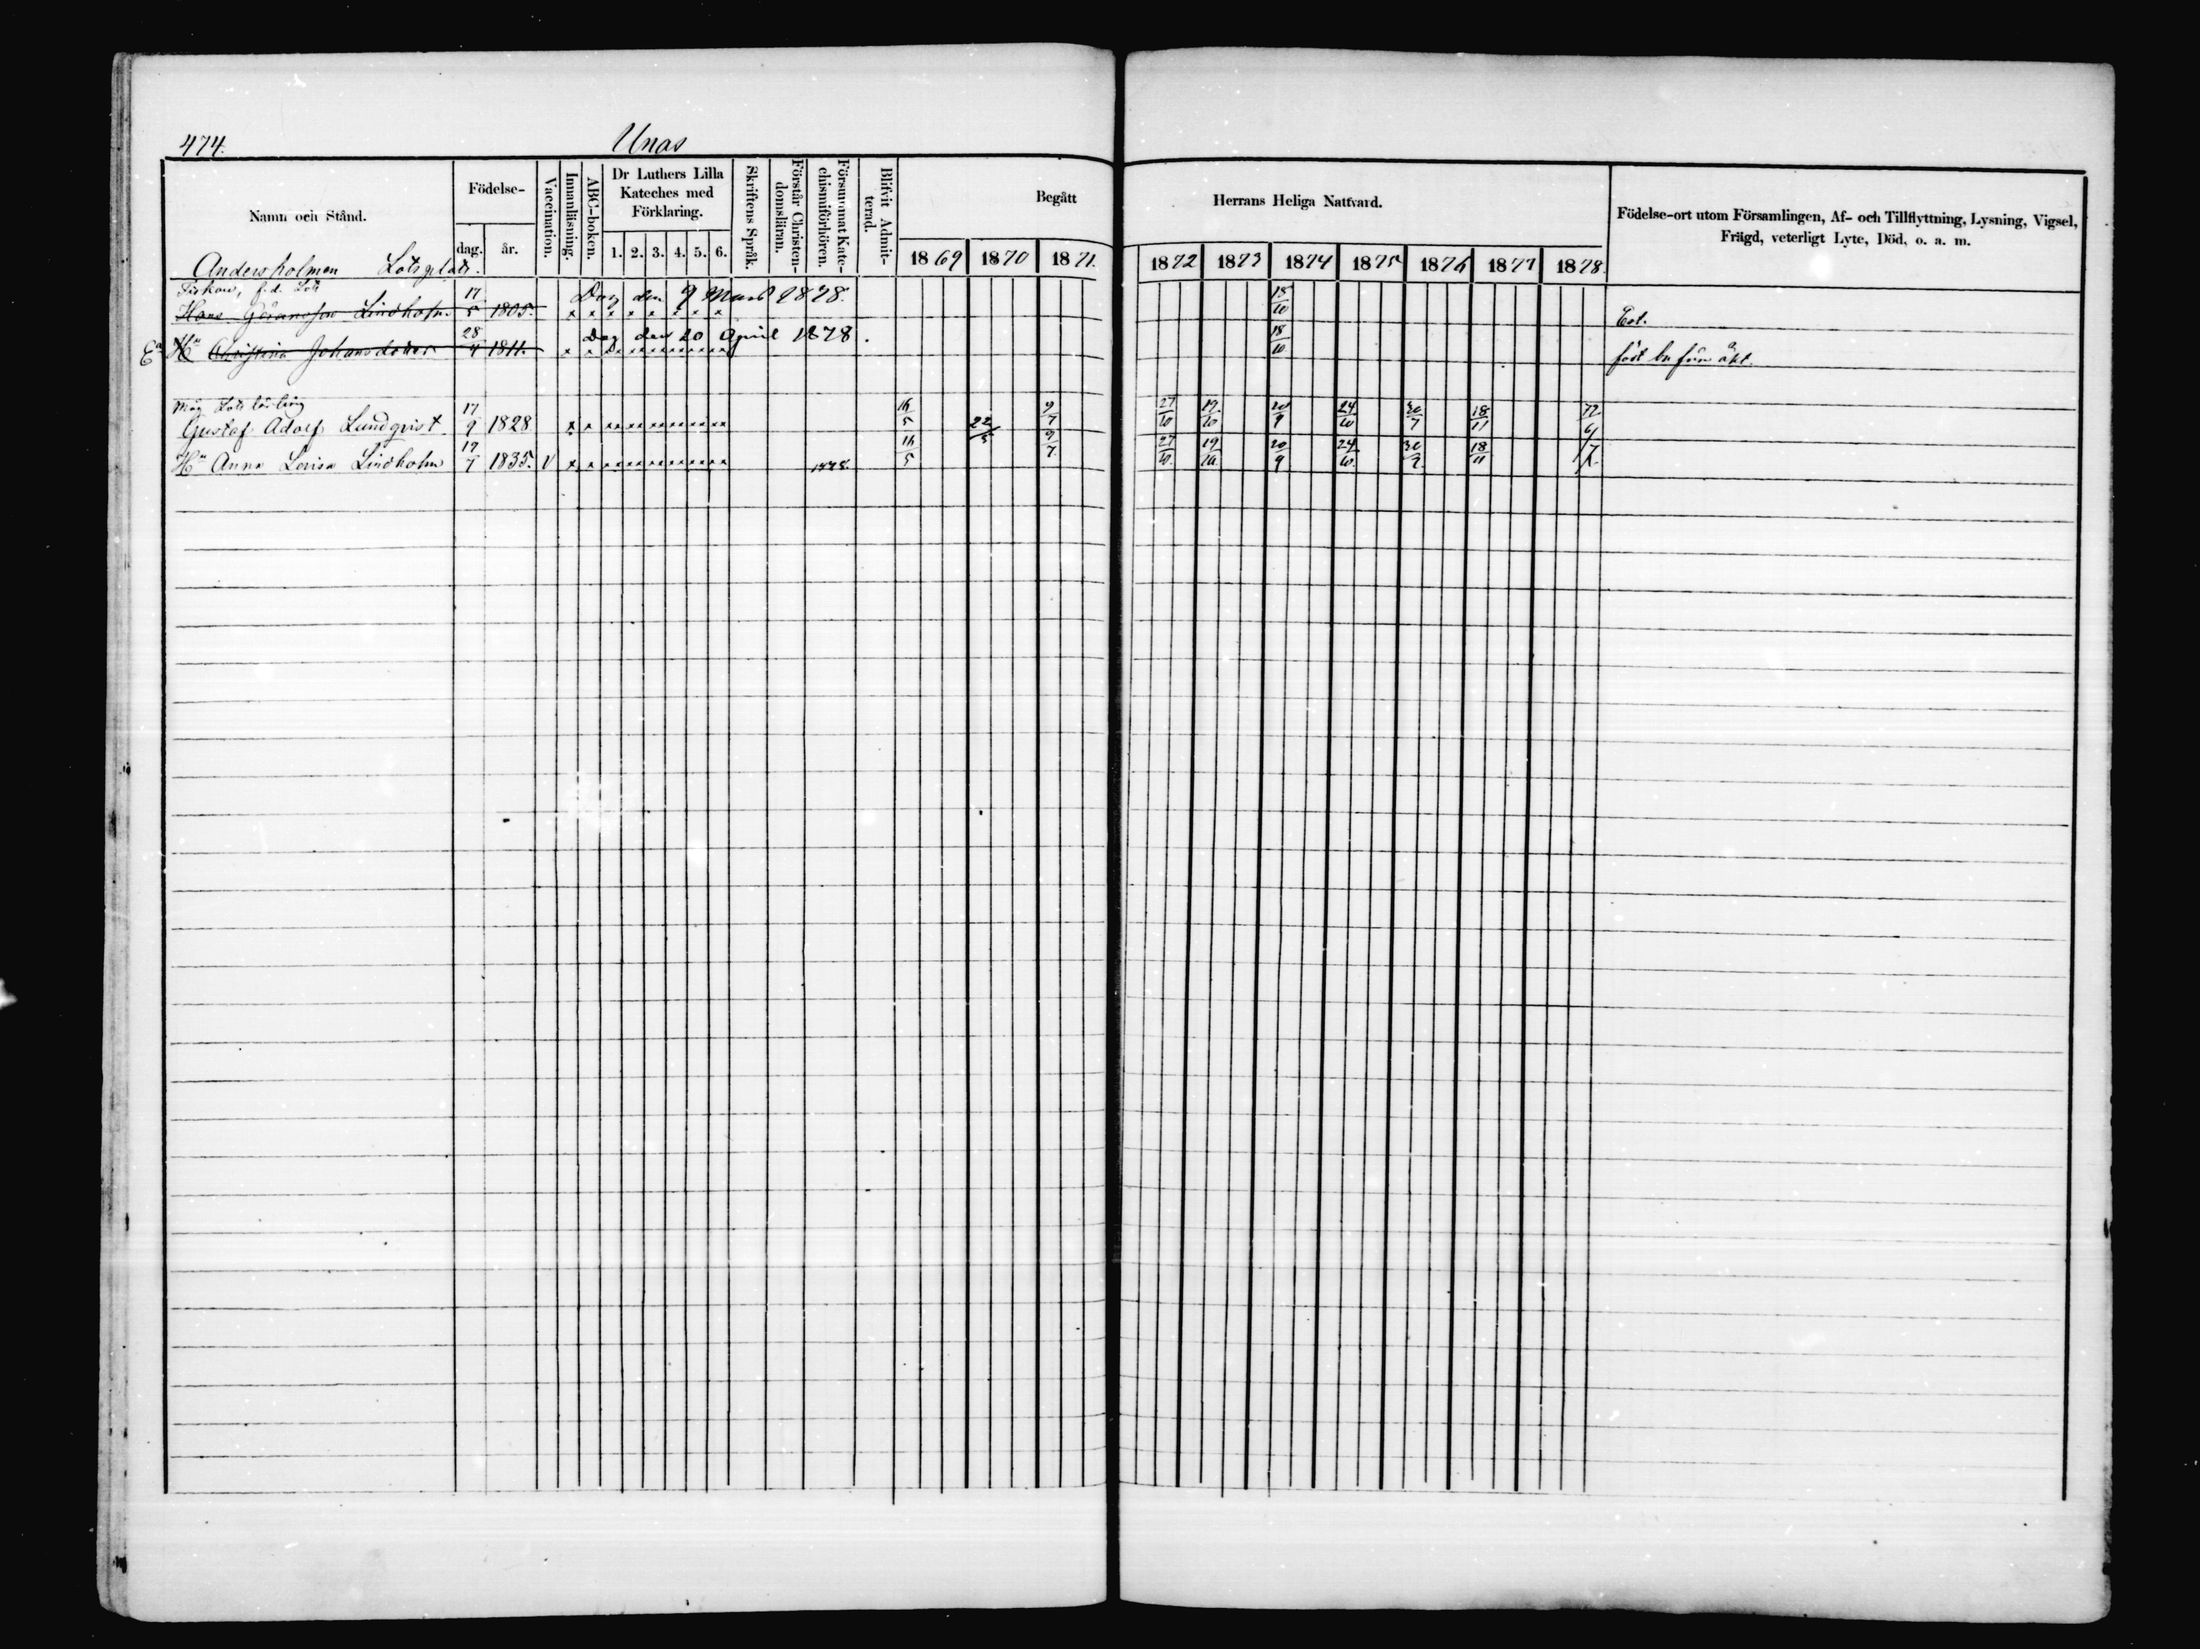 474.
Unas
Namn och Stånd.
Födelse-
dag.
år.
Vaccination.
Innanläsning.
ABC-boken.
Dr Luthers Lilla
Kateches med
Förklaring.
1. 2. 3. 4. 5. 6.
Skriftens Språk.
Förstår Christen-
domsläran.
Försummat Kate-
chismiförhören.
Blifvit Admit-
terad.
Begått
Herrans Heliga Nattvard.
1869 1870 1871.
1872 1873 1874 1875 1876 1877 1878.
Födelse-ort utom Församlingen, Af- och Tillflyttning, Lysning, Vigsel,
Frägd, veterligt Lyte, Död, o. a. m.
Andersholmen Lotsplats.
f.d. Lots 17 Dog den 9 Mars 1878. 18
Hans Göransson Lindholm 5 1805. x x x x x x x x 10
28 Dog den 20 April 1878. 18
Ea Hu Christina Johansdotter 4 1811. x x x x x x x x x x x x x x 10
Måg Lots lärling 17 16 9 27 19 20 24 30 18
Gustaf Adolf Lundqvist 9 1828 x x x x x x x x x x x x x x 5 22/5 7 10 10 9 10 7 11
19 16 9 27 19 20 24 30 18
Hu Anna Lovisa Lindholm 7 1835. V x x x x x x x x x x x x x x 1878. 5 7 10. 10. 9 10. 9. 11